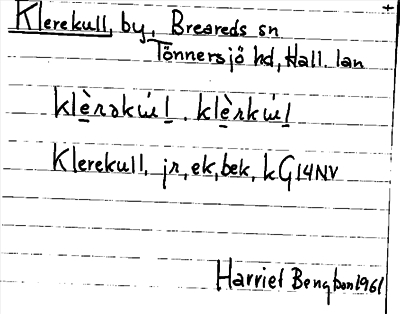 Klerekull, by, Breareds sn
Tönnersjö hd, Hall. län
klè̱rəkẁḻ . klè̱rkẁḻ
Klerekull, jr, ek, bek, kG14NV
Harriet Bengtson 1961